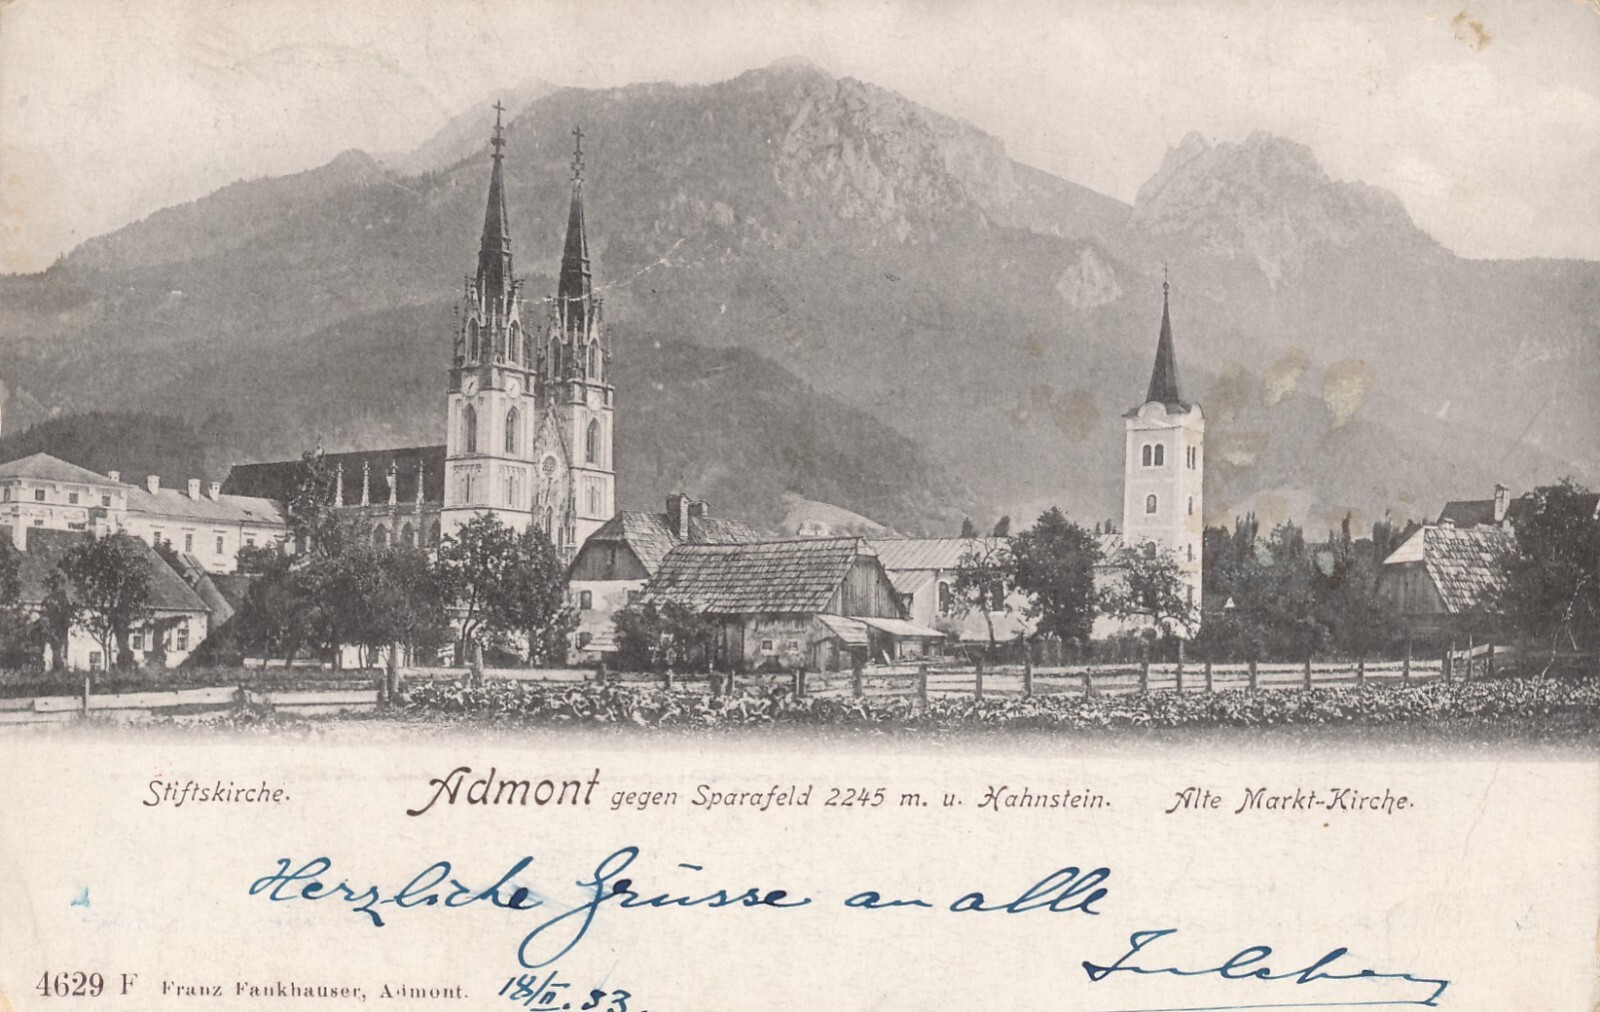 Stiftskirche. Admont gegen Sparafeld 2245 m. u. Hahnstein. Alte Markt-Kirche.
Herzliche Grüsse an alle
4629 F Franz Fankhauser, Admont. 18/II.